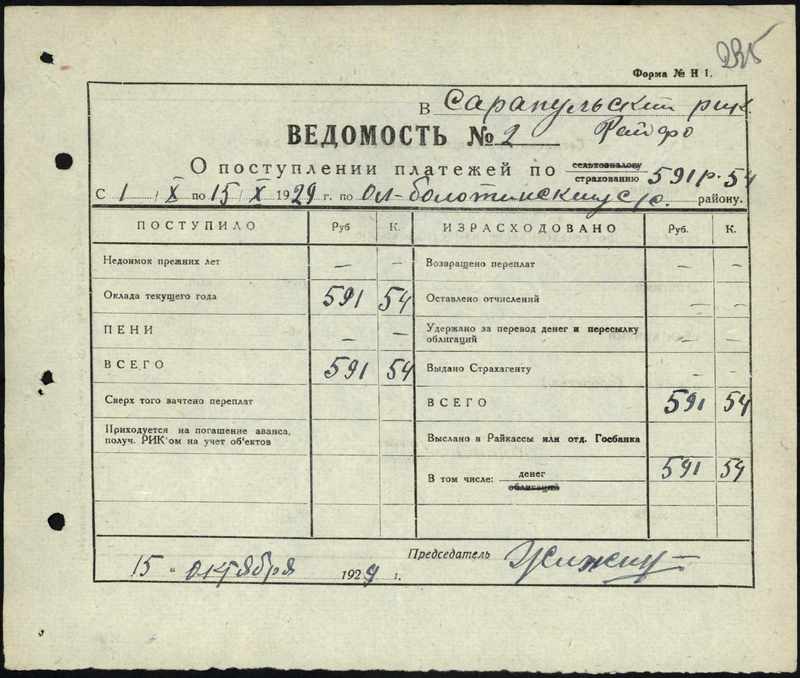 235
Форма № Н 1.
В Сарапульский рик
Райфо
ВЕДОМОСТЬ № 2
О поступлении платежей по сельхозналогу страхованию 591 р. 54
С 1 / X по 15 / X 1929 г. по Ол-болотинскому с/с. району.
ПОСТУПИЛО Руб К. ИЗРАСХОДОВАНО Руб. К.
Недоимок прежних лет — — Возвращено переплат — —
Оклада текущего года 591 54 Оставлено отчислений — —
ПЕНИ — — Удержано за перевод денег и пересылку облигаций — —
ВСЕГО 591 54 Выдано Страхагенту — —
Сверх того зачтено переплат ВСЕГО 591 54
Приходуется на погашение аванса, получ. РИК'ом на учет об'ектов Выслано в Райкассы или отд. Госбанка
В том числе: денег 591 54
облигаций
Председатель
15 " октября 1929 г.